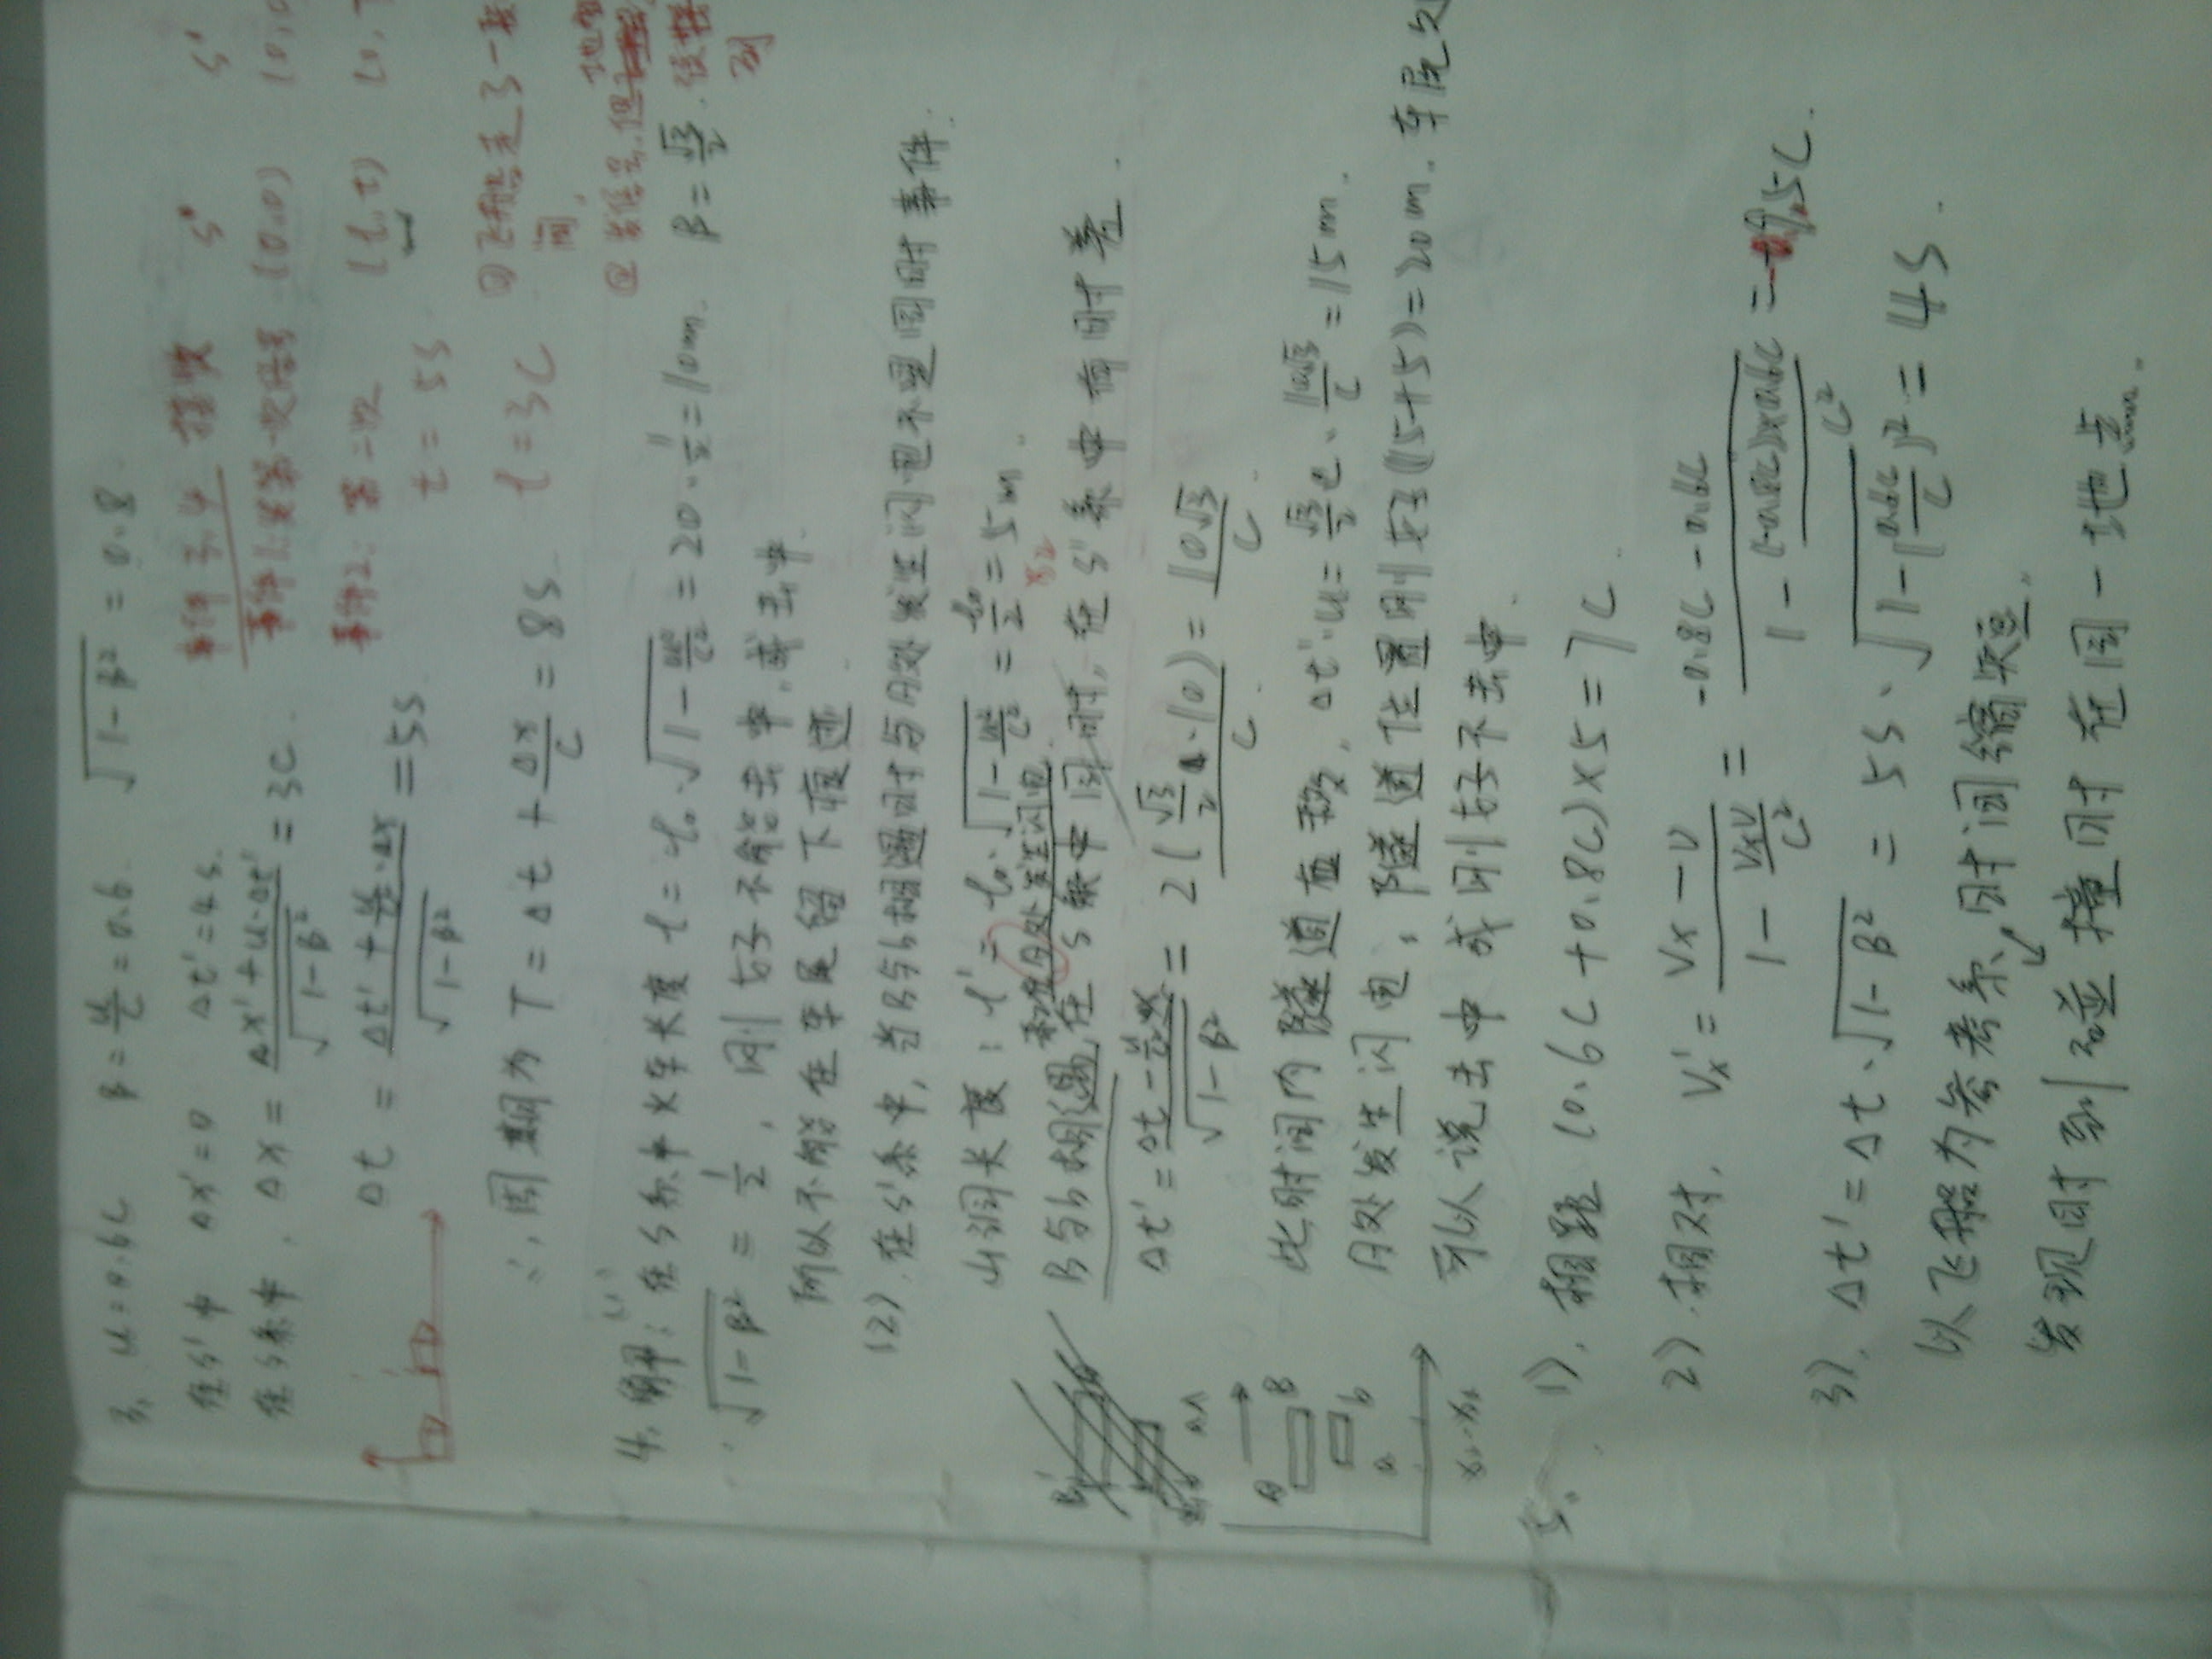 3. u=0.6c β=u/c=0.6. √(1-β²)=0.8
在S'中 Δx'=0 Δt'=4s.
在S系中, Δx=(Δx'+u·Δt')/√(1-β²)=3c.
Δt=(Δt'+u/c²·Δx)/√(1-β²)=5s
∴周期为 T=Δt+Δx/c=8s
事件3.4 接收 S S'
事件1:发第一次信号 (0,0) (0,0
事件2: 第二次 (l,t) (0,
t=5s
l=3c
①飞船走了一段
间,
②发信号,但
地球
没接
到
4. 解:(1) 在S系中火车长度 l=l₀·√(1-u²/c²)=20·1/2=10m. β=√3/2.
√(1-β²)=1/2, 刚好不能击中,或击中.
所以不能在车尾留下痕迹.
(2) 在S'系中,当B与b相遇时与A处发生闪电不是同时事件.
山洞长度:l'=l₀·√(1-u²/c²)=l₀/2=5m.
和在A处发生闪电
B与b相遇,在S系中同时,在S'系中有时差.
Δt'=(Δt-u/c²·Δx)/√(1-β²)=2(√3/2·10)/c=10√3/c.
此时间内隧道在移, Δt'·u=√3/2c·10√3/c=15m.
A处发生闪电,隧道位置刚好(15+5)=20m.车尾处
所以说击中或刚好不击中.
A B
b
a
5. 1).相距 (0.6c+0.8c)×5=7c.
2).相对, Vx'=(Vx-v)/(1-Vxv/c²)=(-0.8c-0.6c)/(1-(-0.8c)×0.6c/c²)=
3). Δt'=Δt·√(1-β²)=5s·√(1-(0.6c/c)²)=4s.
以飞船为参考系,时间缩短.
发现时到碰撞时在同一地点.